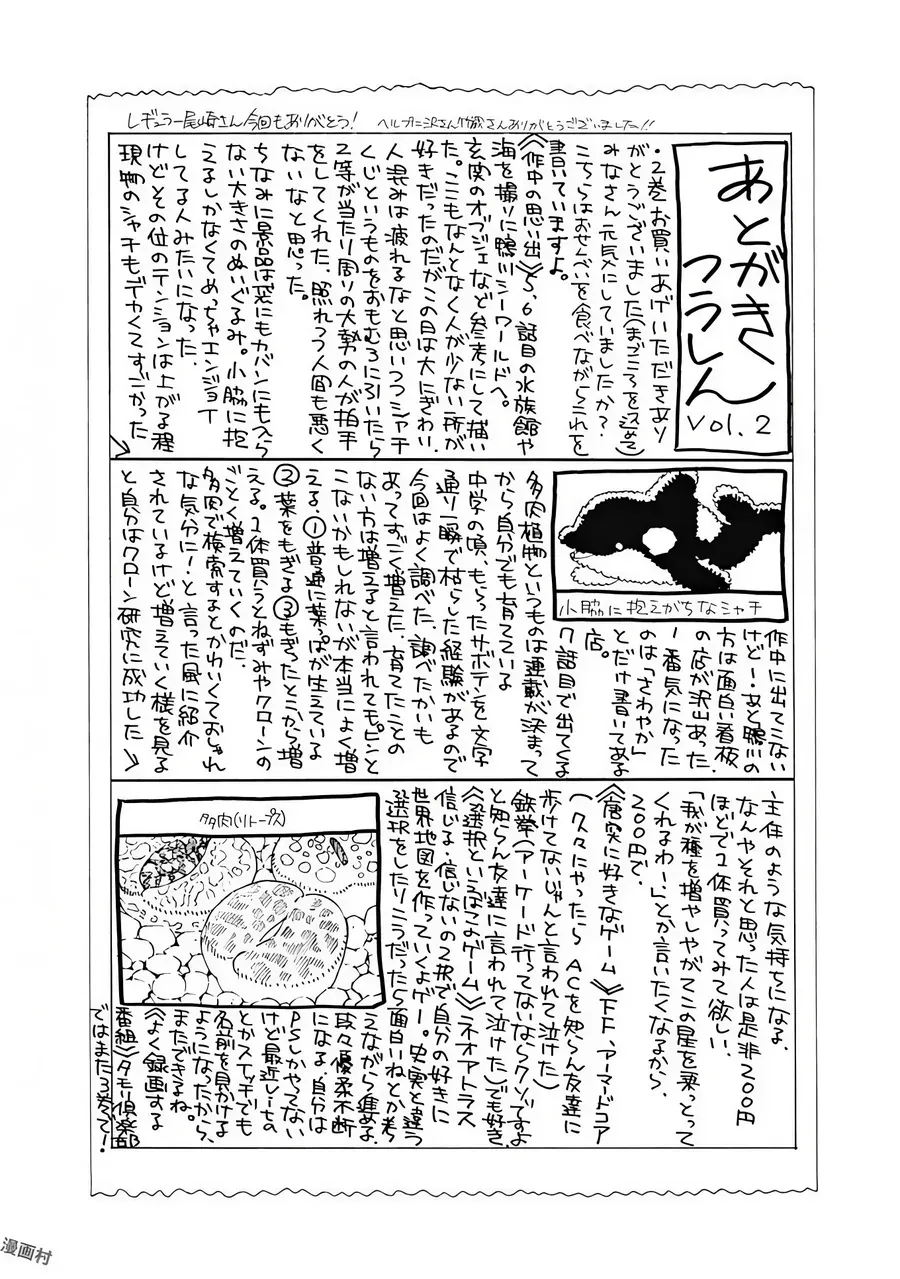 レギュラー尾崎さん今回もありがとう！
あとがき
つうしん
vol.2
・2巻お買いあげいただきあり
がとうございました(まごころを込めて)
みなさん元気にしていましたか？
こちらはおせんべいを食べながらこれを
書いていますよ。
《作中の思い出》5,6話目の水族館や
海を撮りに鴨川シーワールドへ。
玄関のオブジェなど参考にして描い
た。ここもなんとなく人が少ない所が
好きだったのだがこの日は大にぎわい、
人混みは疲れるなと思いつつシャチ
くじというものをおもむろに引いたら
2等が当たり周りの大勢の人が拍手
をしてくれた、照れつつ人間も悪く
ないなと思った。
ちなみに景品は袋にもカバンにも入ら
ない大きさのぬいぐるみ。小脇に抱
えるしかなくてめっちゃエンジョイ
してる人みたいになった
けどその位のテンションは上がる程
現物のシャチもデカくてすごかった
小脇に抱えがちなシャチ
作中に出てこない
けど！あと鴨川の
方は面白い看板
の店が沢山あった、
1番気になった
のは「さわやか」
とだけ書いてある
店。
7話目で出てくる
多肉植物というものは連載が決まって
から自分でも育てている
中学の頃、もらったサボテンを文字
通り一瞬で枯らした経験があるので
今回はよく調べた、調べたかいも
あってすごく増えた、育てたことの
ない方は増えると言われてもピンと
こないかもしれないが本当によく増
える、①普通に葉っぱが生えている
②葉をもぎる③もぎったとこから増
える。1体買うとねずみやクローンの
ごとく増えていくのだ、
多肉で検索するとかわいくておしゃれ
な気分に！と言った風に紹介
されているけど増えていく様を見る
と自分はクローン研究に成功した
主任のような気持ちになる、
なんやそれと思った人は是非200円
ほどで1体買ってみて欲しい、
「我が種を増やしやがてこの星を乗っとって
くれるわー」とか言いたくなるから、
200円で、
《唐突に好きなゲーム》FF、アーマードコア
(久々にやったらACを知らん友達に
歩けてないじゃんと言われて泣けた)
鉄拳(アーケード行ってないならクソですよ
と知らん友達に言われて泣けた)でも好き、
《選択といえばこのゲーム》ネオアトラス
信じる・信じないの2択で自分の好きに
世界地図を作っていくよゲー。史実と違う
選択をしたりこうだったら面白いねとか考
えながら進める、
段々優柔不断
になる、自分は
PSしかやってない
けど最近レーヒの
とかスイッチでも
名前を見かける
ようになったから、
またできるね。
《よく録画する
番組》タモリ倶楽部
ではまた3巻で！
多肉(リトープス)
漫画村